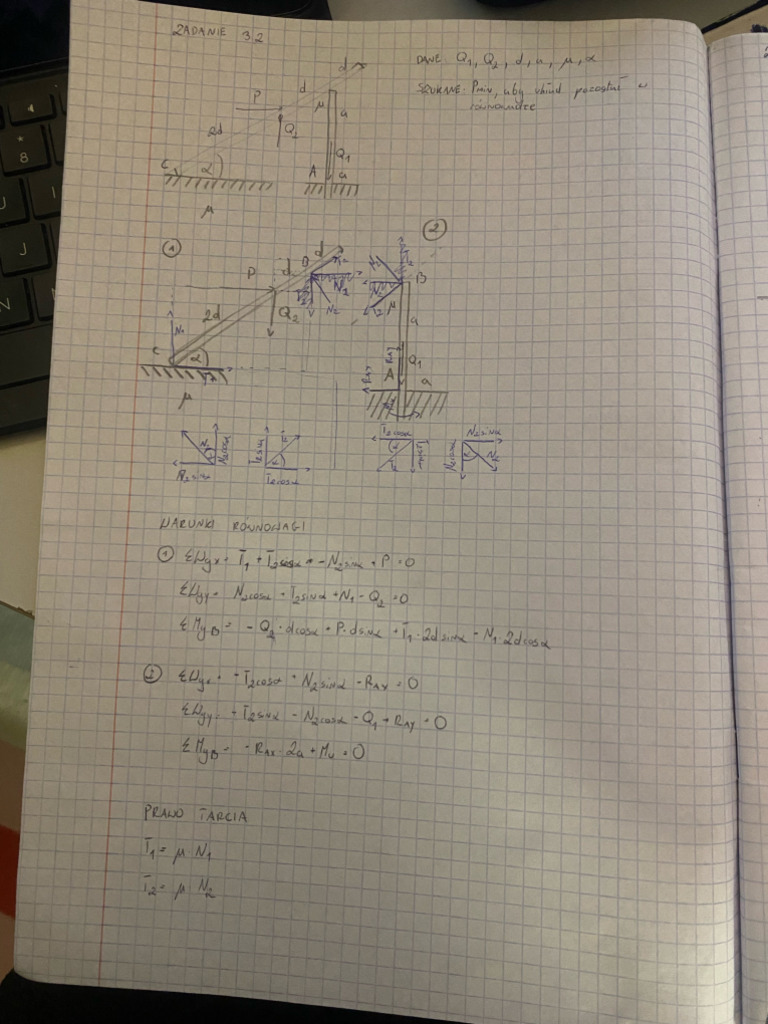 ZADANIE 3.2
DANE: Q1, Q2, d, a, μ, α
SZUKANE: Pmin, aby układ pozostał w
równowadze
d
d
P
μ
a
2d
Q2
Q1
C
α
A
a
μ
①
②
d
B
d
P
N2
T2
B
N2
μ
2d
Q2
N2
a
N1
C
α
Q1
RAY
RAX
A
a
μ
N2
N2cosα
N2sinα
T2sinα
T2
T2cosα
T2cosα
N2sinα
N2cosα
N2
WARUNKI RÓWNOWAGI
① ΣWyx = T1 + T2cosα - N2sinα + P = 0
ΣWyy = N2cosα + T2sinα + N1 - Q2 = 0
ΣMyB = - Q2 · dcosα + P · dsinα + T1 · 2dsinα - N1 · 2dcosα
② ΣWyx = - T2cosα + N2sinα - RAX = 0
ΣWyy = - T2sinα - N2cosα - Q1 + RAY = 0
ΣMyB = - RAX · 2a + Mu = 0
PRAWO TARCIA
T1 = μ N1
T2 = μ N2